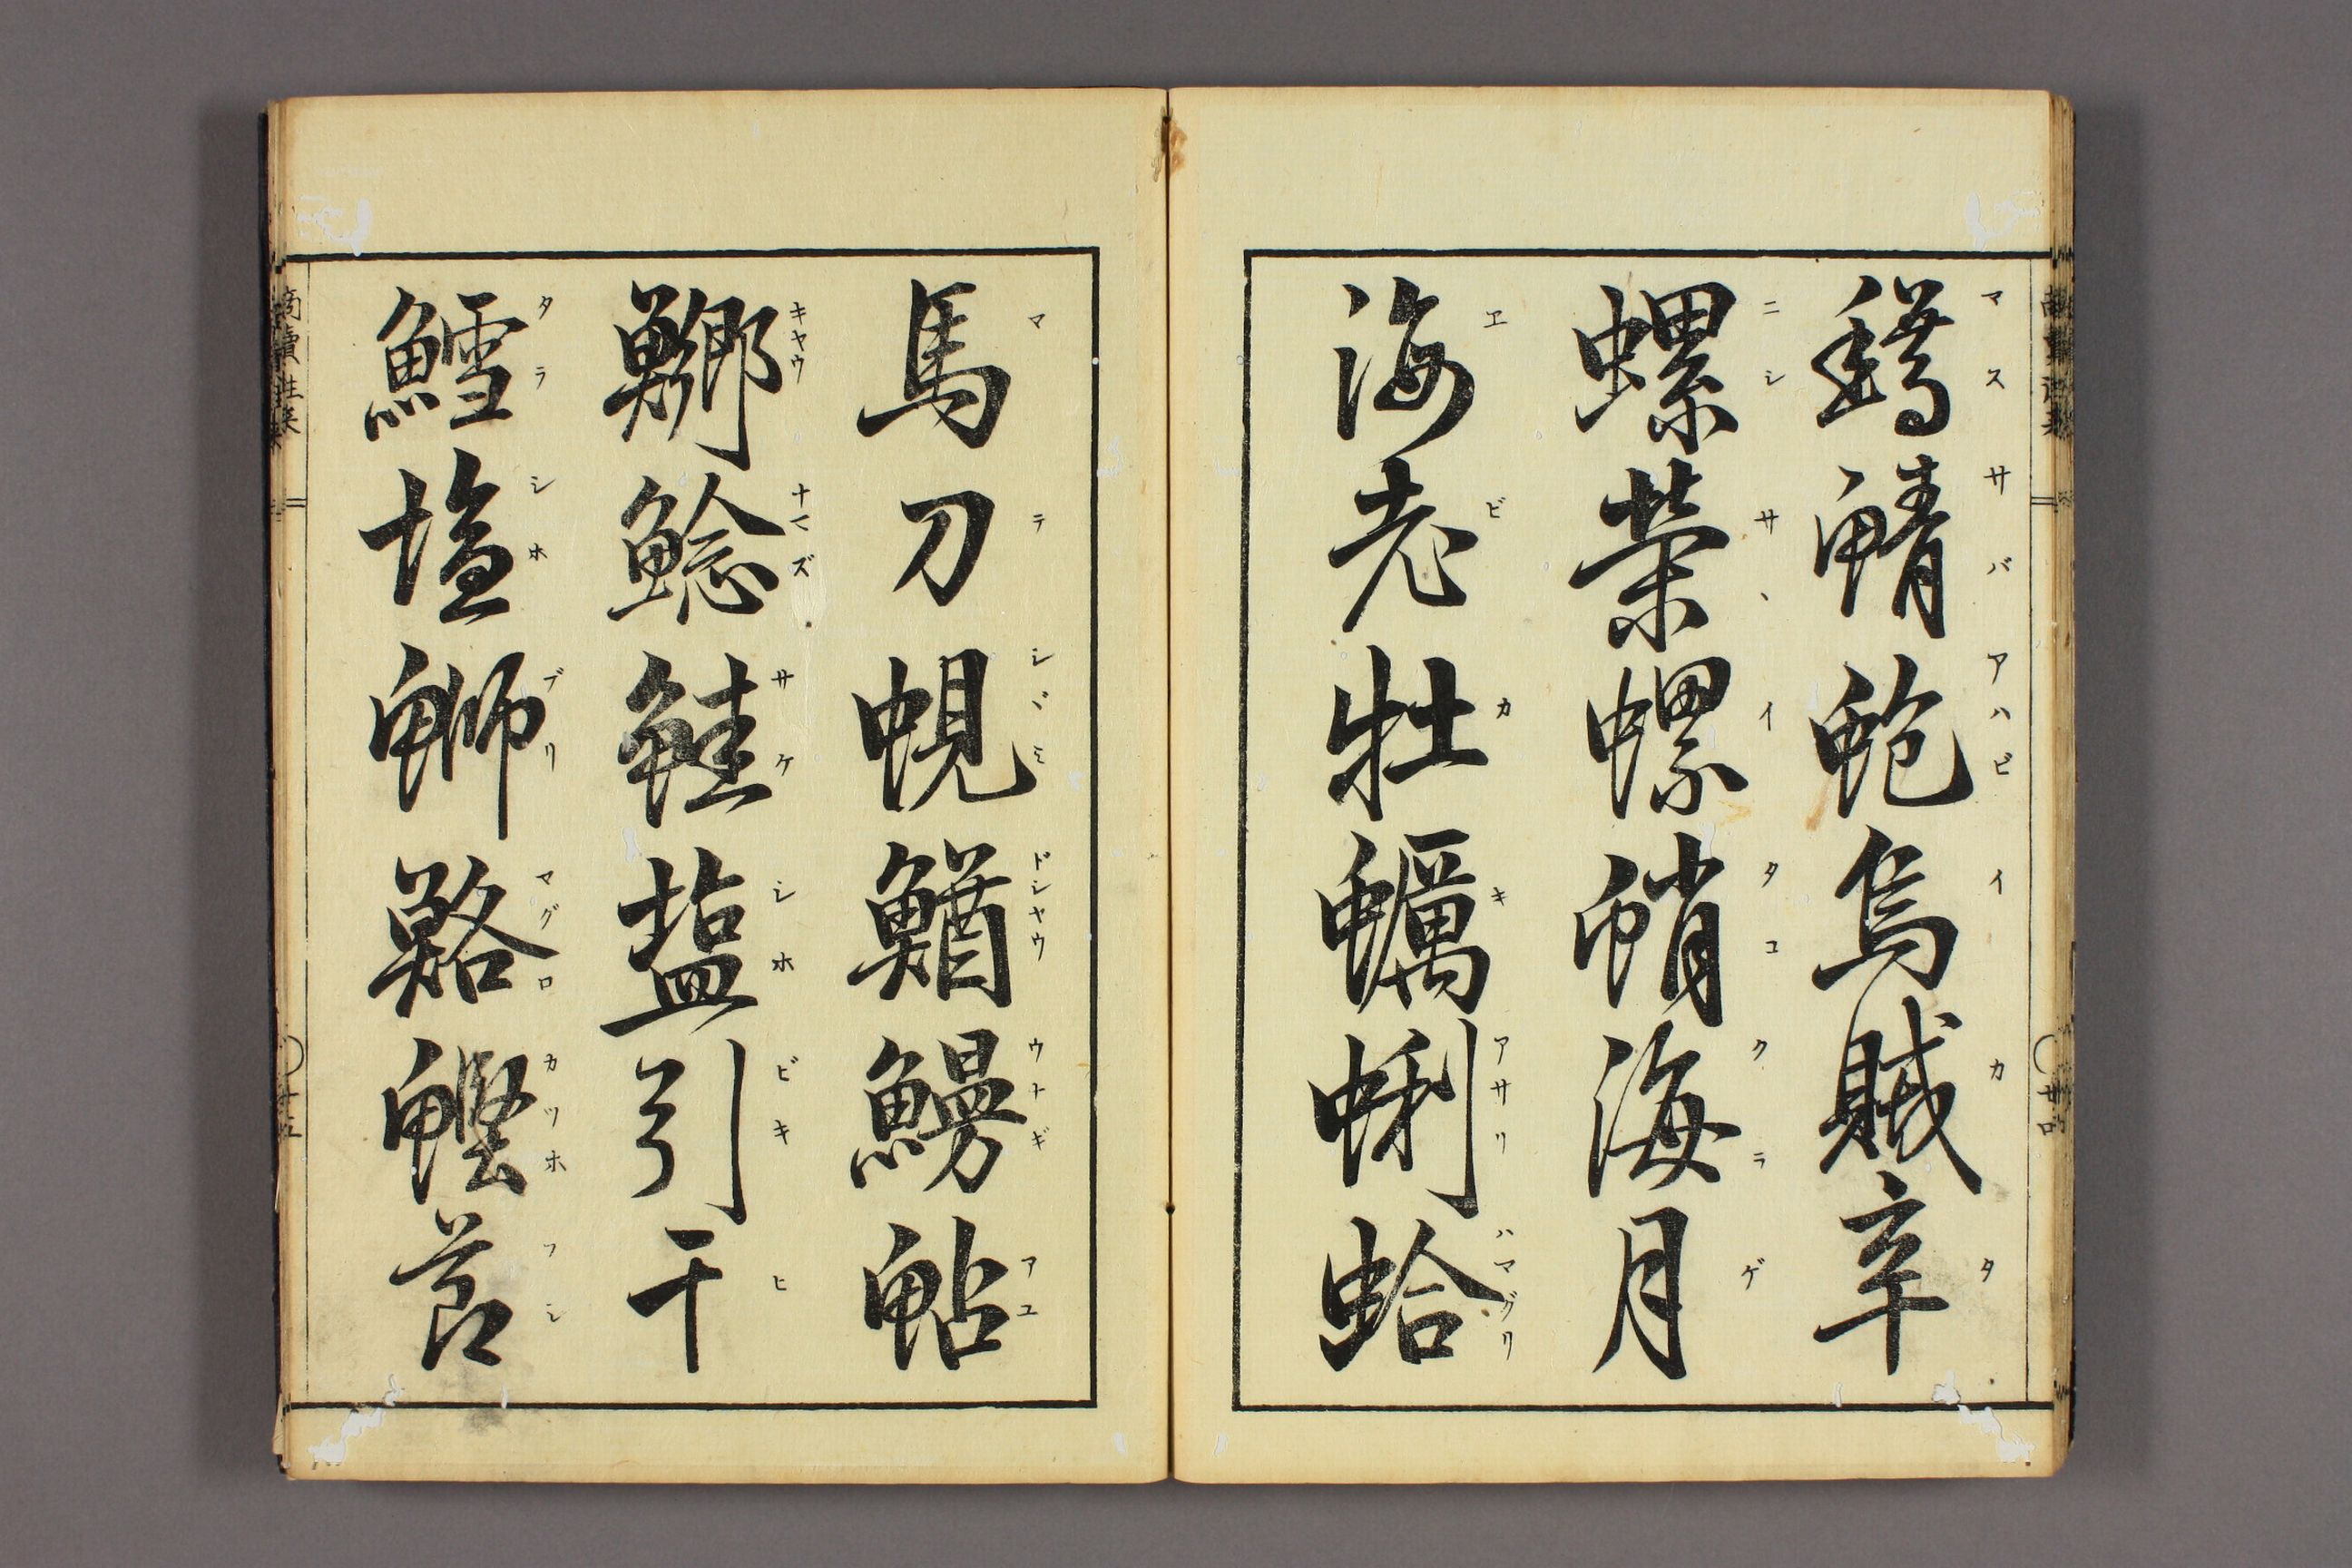 鱒鯖鮑烏賊辛
マスサバアハビイカタ
螺栄螺蛸海月
ニシサヽイタコクラゲ
海老牡蠣蜊蛤
ヱビカキアサリハマグリ
馬刀蜆鰌鰻鮎
マテシヾミドジヤウウナギアユ
鯽鯰鮭塩引干
キヤウナマズサケシホビキヒ
鱈塩鰤鮥鰹節
タラシホブリマグロカツホフシ